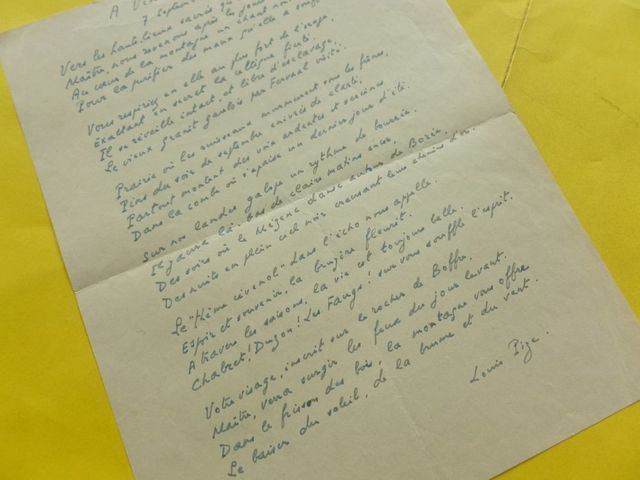 A Vin
7 septem
Vers les hauts-lieux sacrés
Maître, nous revenons après les jours
Au cœur de la montagne un chant
Pour la purifier des maux qu'elle a
Vous respiriez en elle au plus fort de l'orage
Exaltant en secret la celtique fierté
Il se réveille intact, et libre d'esclavage,
Le vieux granit gaulois par Fervaal visité.
Prairie où les ruisseaux murmurent sous les frênes,
Pins du soir de septembre enivrés de clarté,
Partout montent des voix ardentes et sereines
Dans la combe où s'apaise un dernier jour d'été.
Sur nos landes galope un rythme de bourrée.
Il y aura là-bas de clairs matins encor,
Des soirs où le Mézenc danse autour de Borée,
Des nuits en plein ciel noir creusant leurs chemins d'or.
Le "thème cévenol" dans l'écho nous appelle.
Espoir et souvenir, la bruyère fleurit.
A travers les saisons, la vie est toujours belle.
Chabret! Duzon! Les Faugs! sur vous souffle l'esprit.
Votre visage, inscrit sur le rocher de Boffre,
Maître, verra surgir les feux du jour levant.
Dans le frisson des bois, la montagne vous offre
Le baiser du soleil, de la brume et du vent.
Louis Pize.